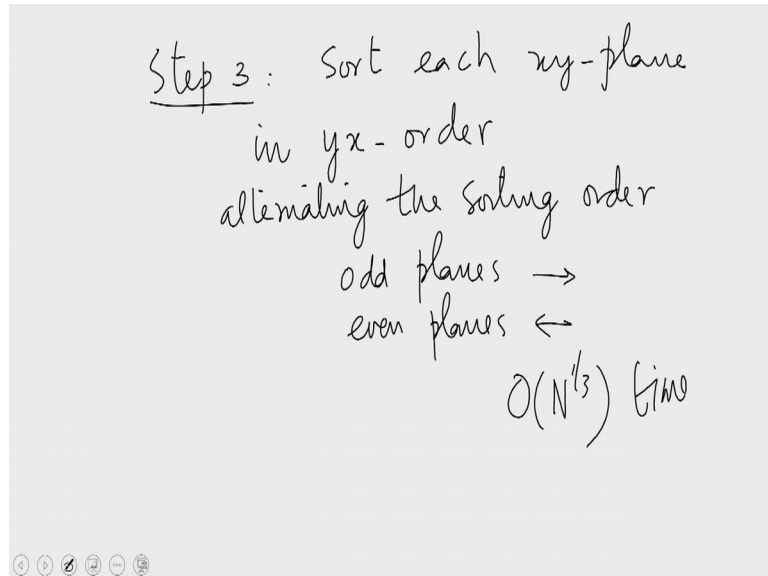 Step 3: Sort each xy-plane
in yx-order
alternating the sorting order
odd planes →
even planes ←
O(N^{1/3}) time